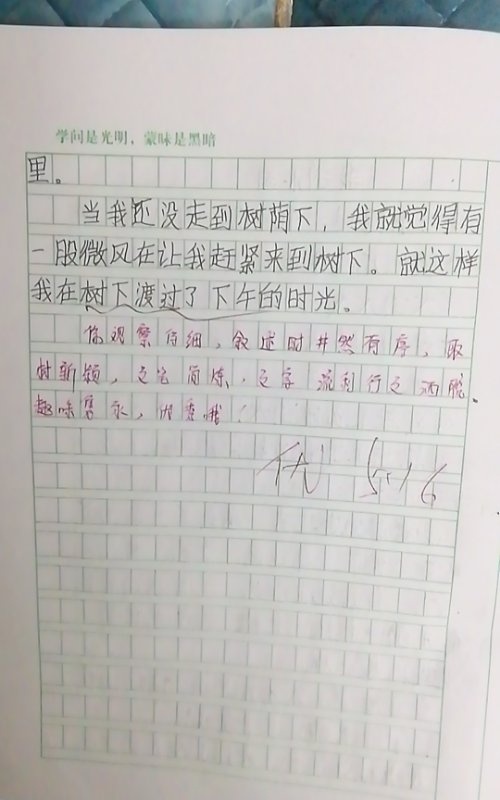 学问是光明，蒙昧是黑暗
里。
当我还没走到树荫下，我就觉得有
一股微风在让我赶紧来到树下。就这样
我在树下渡过了下午的时光。
你观察仔细，叙述时井然有序，取
材新颖，文笔简练，文字流利行文洒脱、
趣味隽永，优秀哦！
优 5.16